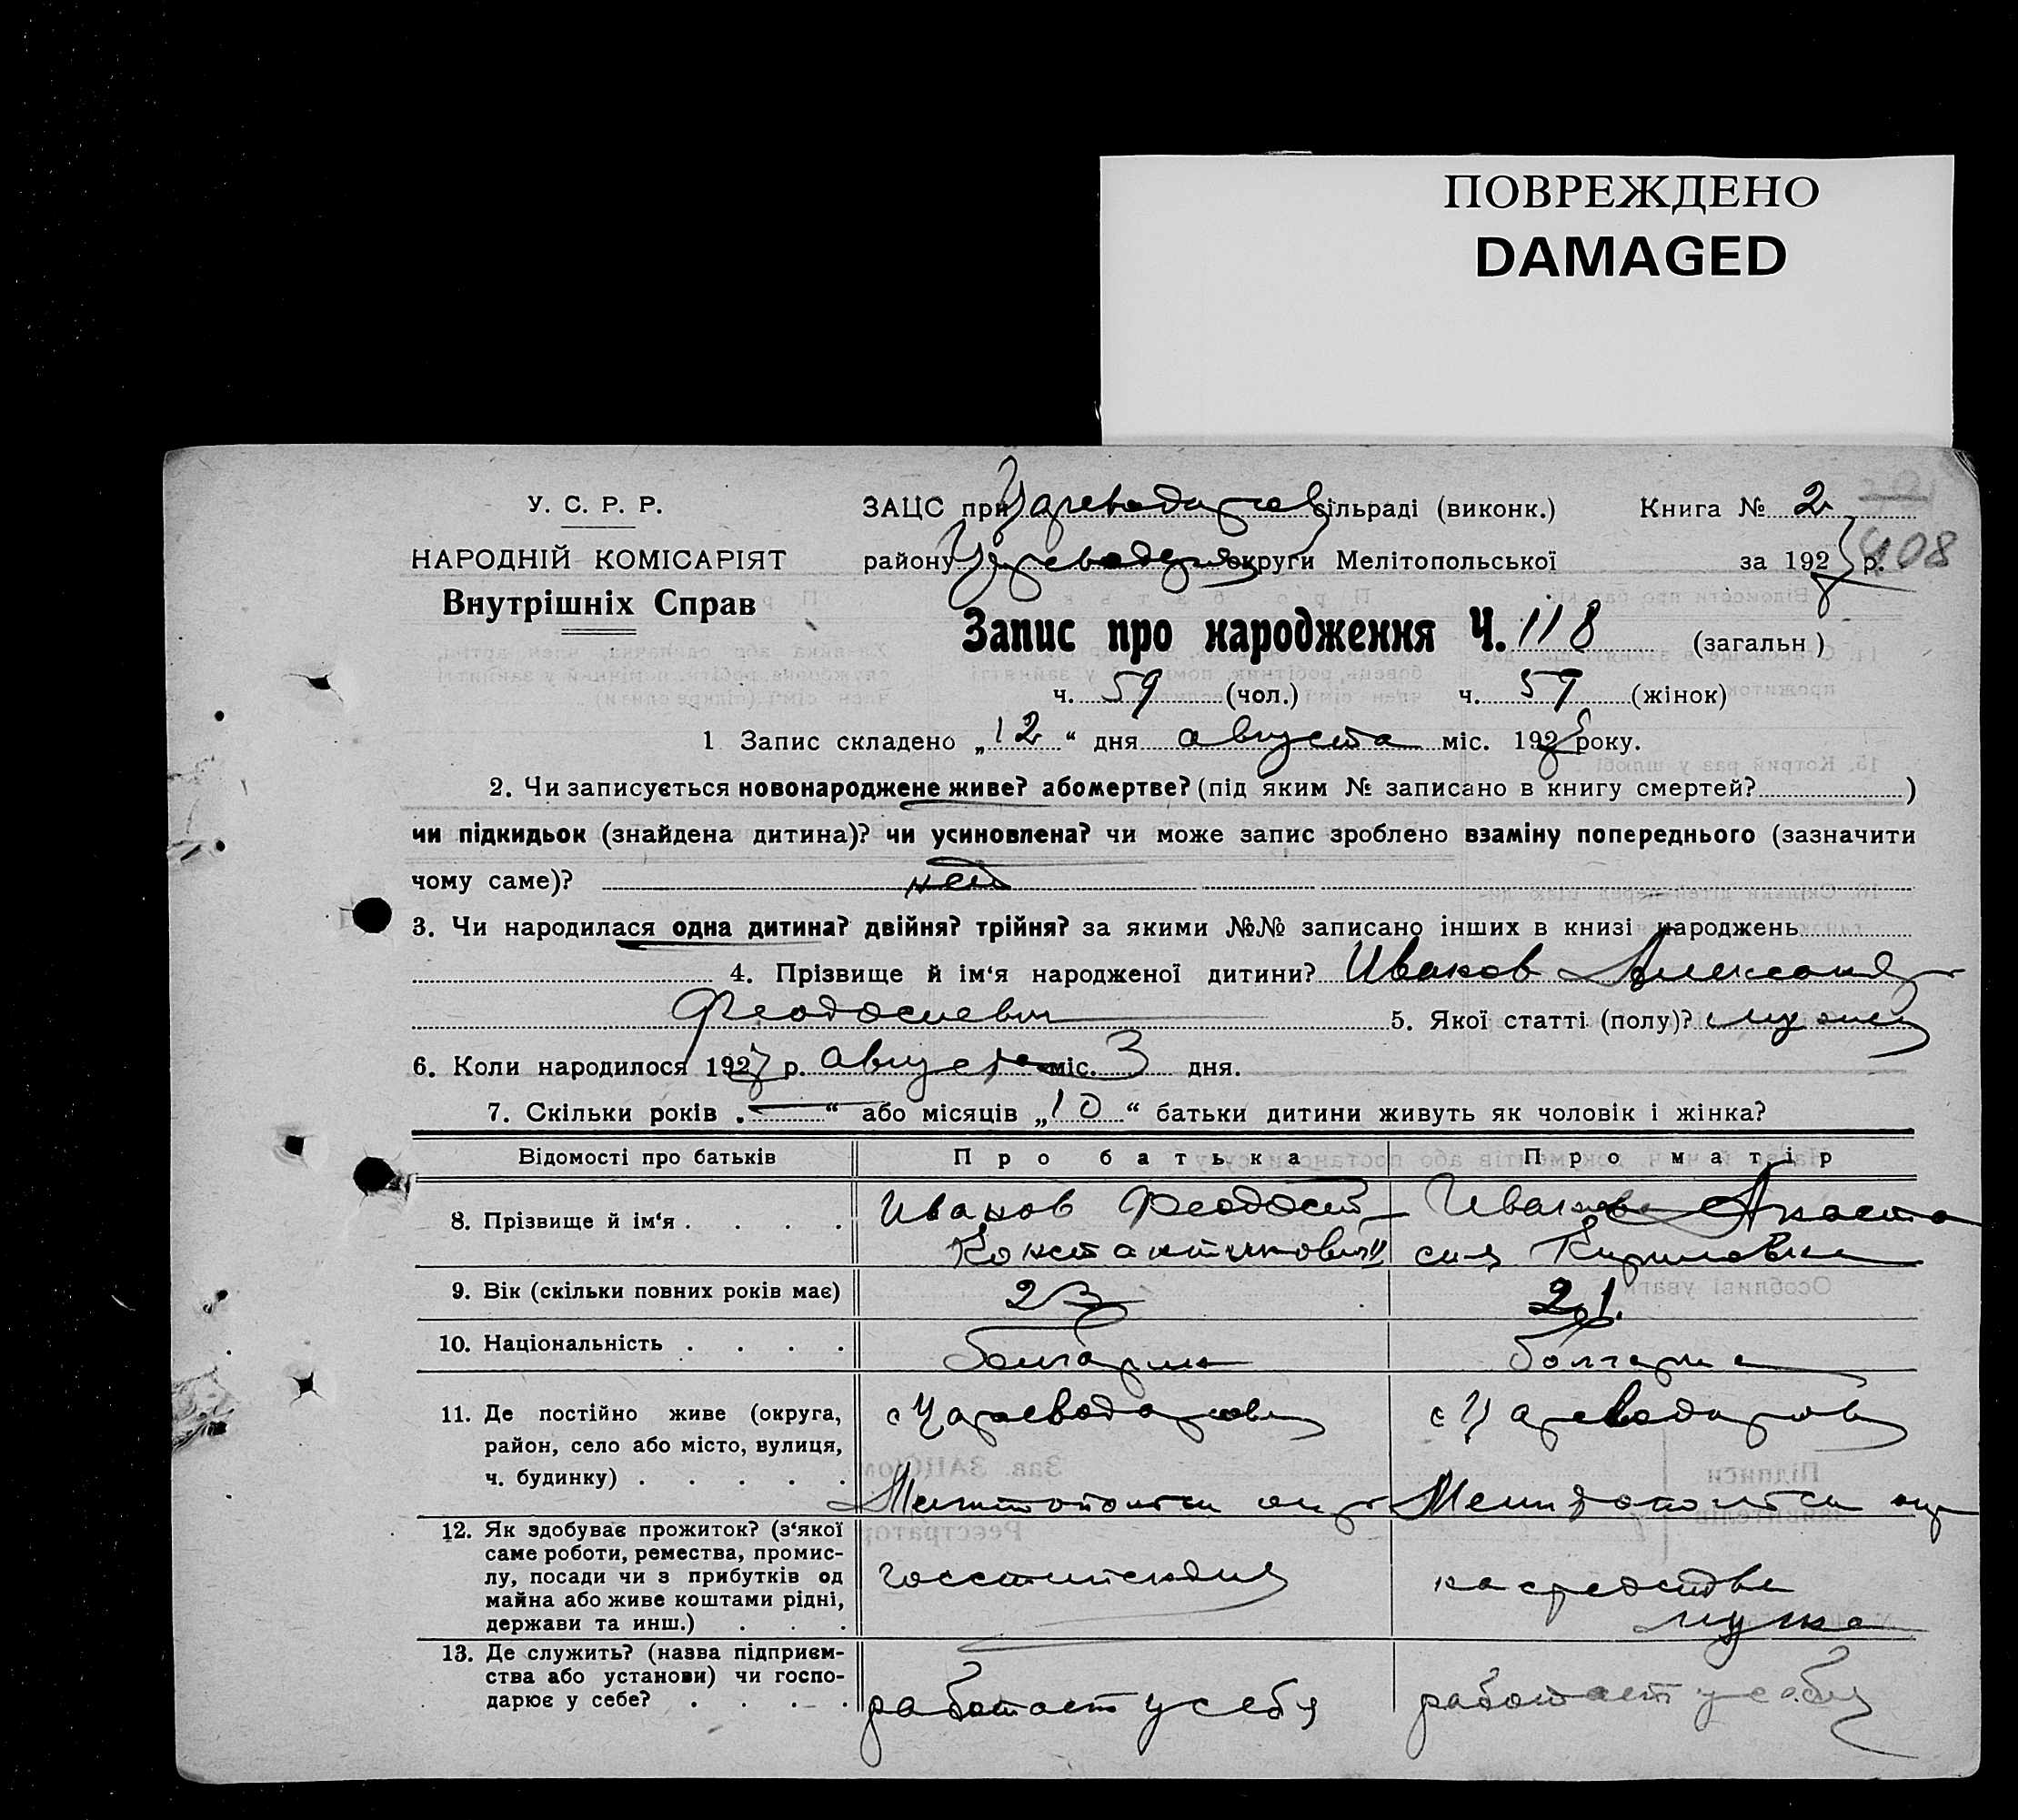 ПОВРЕЖДЕНО
DAMAGED
У. С. Р. Р.
НАРОДНІЙ КОМІСАРІЯТ
Внутрішніх Справ
ЗАЦС при Цареводаровсільраді (виконк.) Книга № 2
району округи Мелітопольської за 192 р. 408
Запис про народження Ч. 118 (загальн )
ч. 59 (чол.) ч. 59 (жінок)
1 Запис складено „ 12 “ дня августа міс. 192 року.
2. Чи записується новонароджене живе? або мертве? (під яким № записано в книгу смертей? )
чи підкидьок (знайдена дитина)? чи усиновлена? чи може запис зроблено взаміну попереднього (зазначити
чому саме)? нет
3. Чи народилася одна дитина? двійня? трійня? за якими №№ записано інших в книзі народжень
4. Прізвище й ім‘я народженої дитини? Иванов Александр
Феодосиевич 5. Якої статті (полу)?
6. Коли народилося 192 р. августа міс. 3 дня.
7. Скільки років „ — “ або місяців „ 10 “ батьки дитини живуть як чоловік і жінка?
Відомості про батьків Про батька Про матір
8. Прізвище й ім‘я . . . . Иванов Феодосий Иванова Анаста
Константинович сия Кириловна
9. Вік (скільки повних років має) 23 21.
10. Національність . . . . болгарин болгарка
11. Де постійно живе (округа, с Цареводаровка с Цареводаровка
район, село або місто, вулиця,
ч. будинку) . . . . . Мелитопольск окр Мелитопольск окр
12. Як здобуває прожиток? (з‘якої
саме роботи, ремества, промис-
лу, посади чи з прибутків од на средства
майна або живе коштами рідні, мужа
держави та инш.) . . .
13. Де служить? (назва підприєм-
ства або установи) чи госпо-
дарює у себе? . . . . работает у себя работает у себя